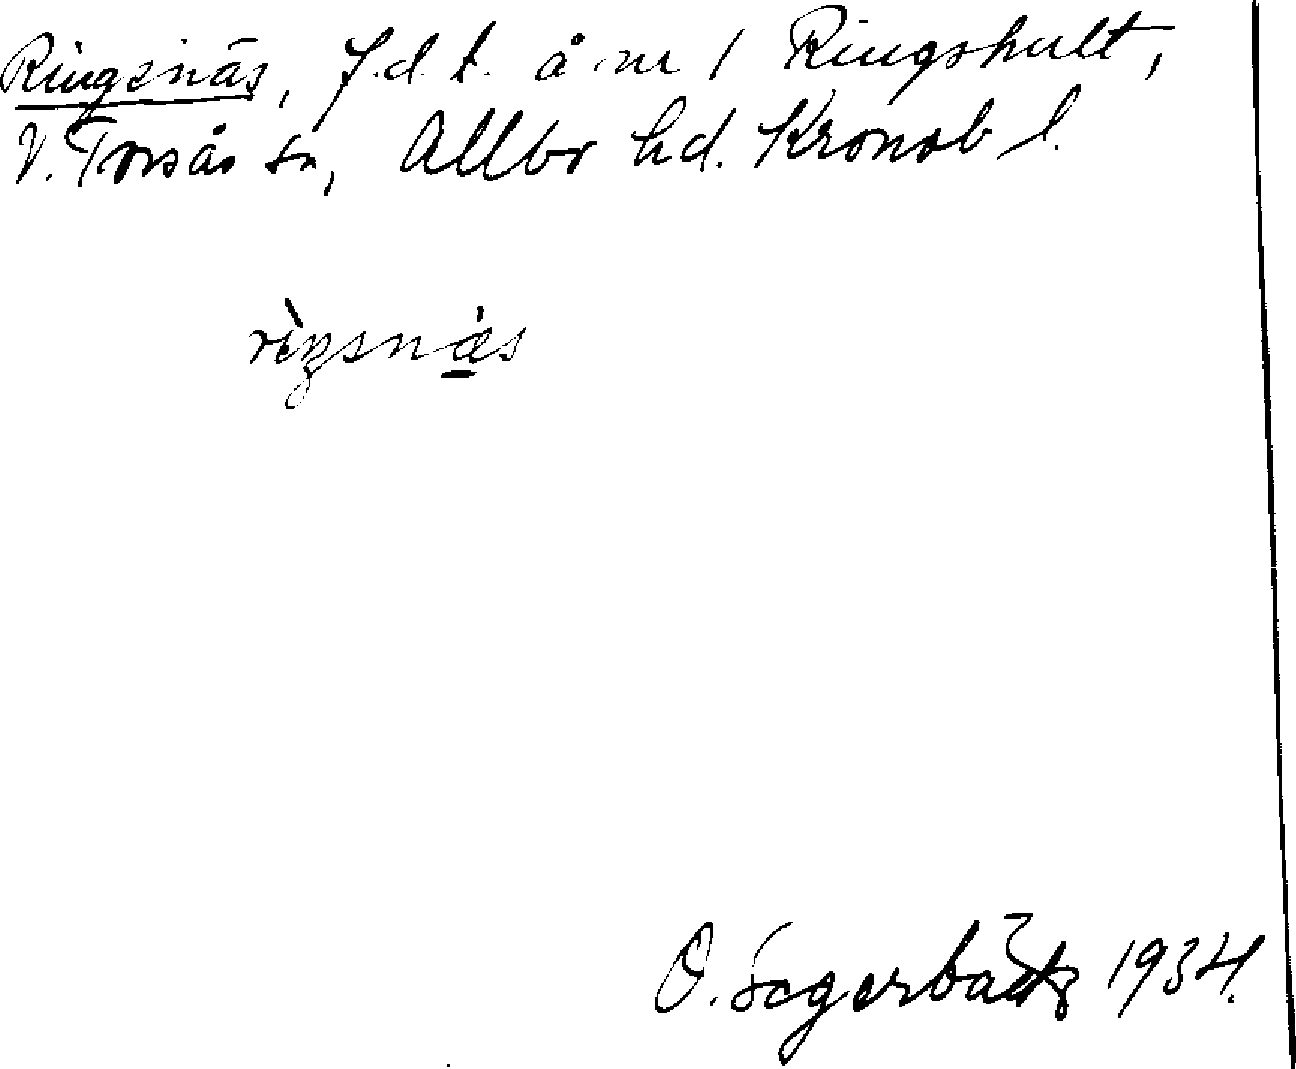 Ringsnäs, f.d. t. å nr 1 Ringshult,
V. Torsås sn, Allbo hd. Kronob l.
rìŋsnæ̠̀s
O. Segerbäck 1934.